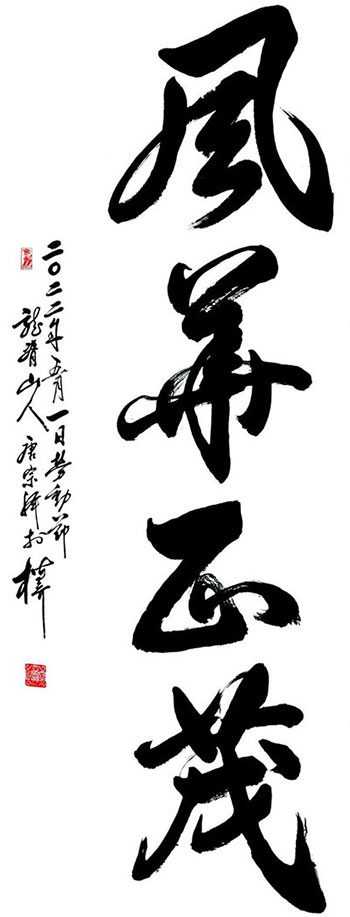 風華正茂
二〇二二年五月一日勞動節
龍脊山人唐宗輝书